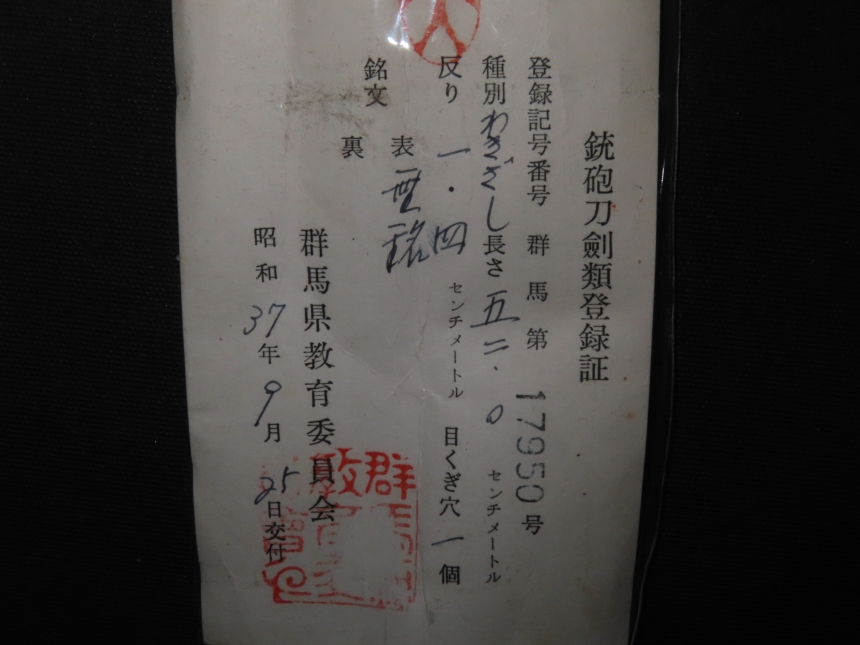 銃砲刀劍類登録証
登録記号番号 群馬第 17950 号
種別 わきざし 長さ 五二.0 センチメートル
反り 一.四 センチメートル 目くぎ穴 一 個
銘文
表 無銘
裏
群馬県教育委員会
昭和 37 年 9 月 25 日交付